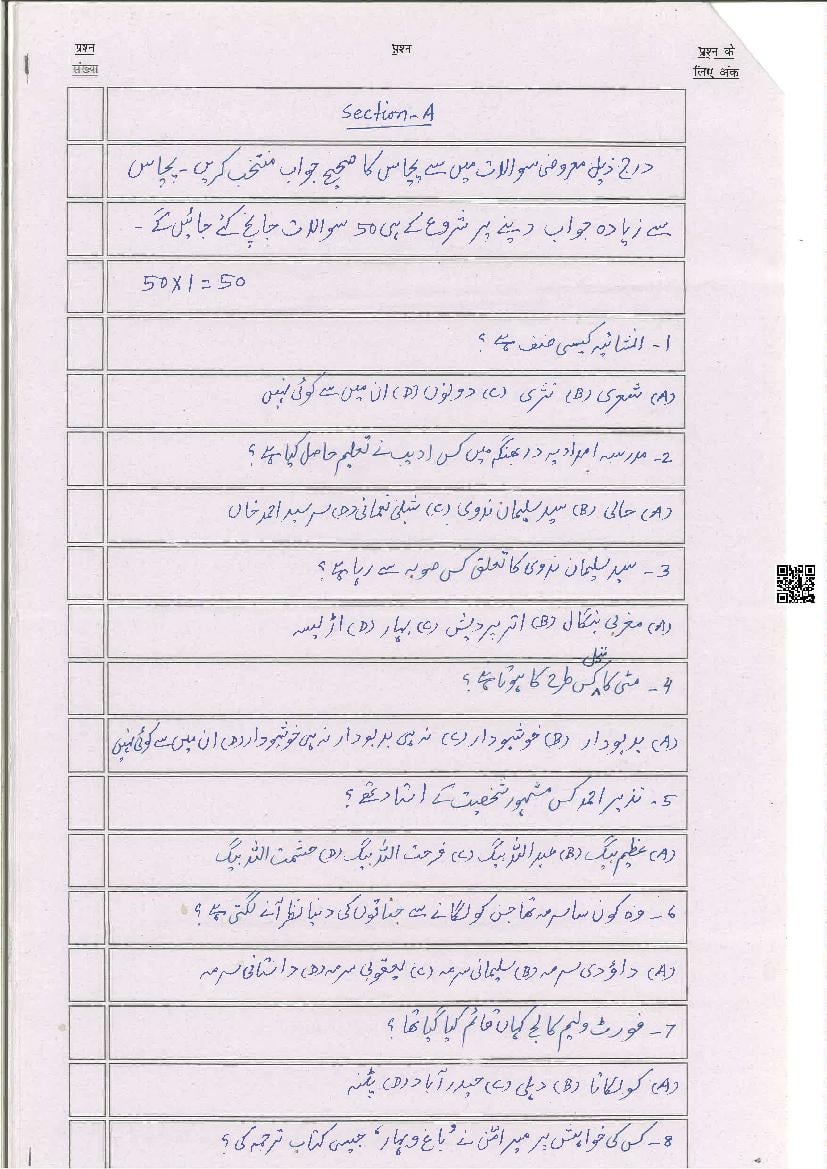 प्रश्न
संख्या
प्रश्न
प्रश्न के
लिए अंक
Section-A
درج ذیل معروضی سوالات میں سے پچاس کا صحیح جواب منتخب کریں - پچاس
سے زیادہ جواب دینے پر شروع کے ہی 50 سوالات جانچے کئے جائیں گے -
50x1=50
1- انشائیہ کیسی صنف ہے؟
(A) شعری (B) نثری (C) دونوں (D) ان میں سے کوئی نہیں
2- مدرسہ امدادیہ دربھنگہ میں کس ادیب نے تعلیم حاصل کیا ہے؟
(A) حالی (B) سید سلیمان ندوی (C) شبلی نعمانی (D) سر سید احمد خاں
3- سید سلیمان ندوی کا تعلق کس صوبہ سے رہا ہے؟
(A) مغربی بنگال (B) اتر پردیش (C) بہار (D) اڑیسہ
4- مٹی کا تیل کس طرح کا ہوتا ہے؟
(A) بدبودار (B) خوشبودار (C) نہ ہی بدبودار نہ ہی خوشبودار (D) ان میں سے کوئی نہیں
5- نذیر احمد کس مشہور شخصیت کے استاد تھے؟
(A) عظیم بیگ (B) عبداللہ بیگ (C) فرحت اللہ بیگ (D) حشمت اللہ بیگ
6- وہ کون سا سرمہ تھا جن کو لگانے سے جناتوں کی دنیا نظر آنے لگتی ہے؟
(A) داؤدی سرمہ (B) سلیمانی سرمہ (C) یعقوبی سرمہ (D) داستانی سرمہ
7- فورٹ ولیم کالج کہاں قائم کیا گیا تھا؟
(A) کولکاتا (B) دہلی (C) حیدرآباد (D) پٹنہ
8- کس کی خواہش پر میر امن نے 'باغ و بہار' جیسی کتاب ترجمہ کی؟